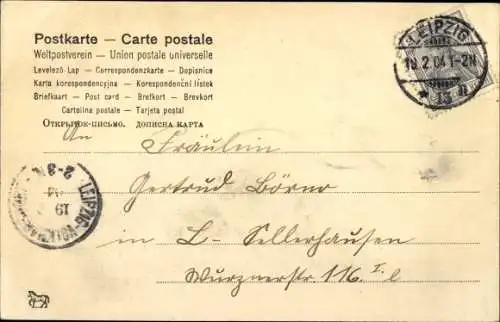 Postkarte — Carte postale
Weltpostverein — Union postale universelle
Levelező-Lap — Correspondenzkarte — Dopisnice
Karta korespondencyjna — Korespondenční lístek
Briefkaart — Post card — Brefkort — Brevkort
Cartolina postale — Tarjeta postal
Открытое-письмо. дописна карта
LEIPZIG
19.2.04.1-2N
* 13 n
An Fräulein
Gertrud Börner
in L-Sellerhausen
Wurznerstr. 116 I. l
LEIPZIG-
19
2-3